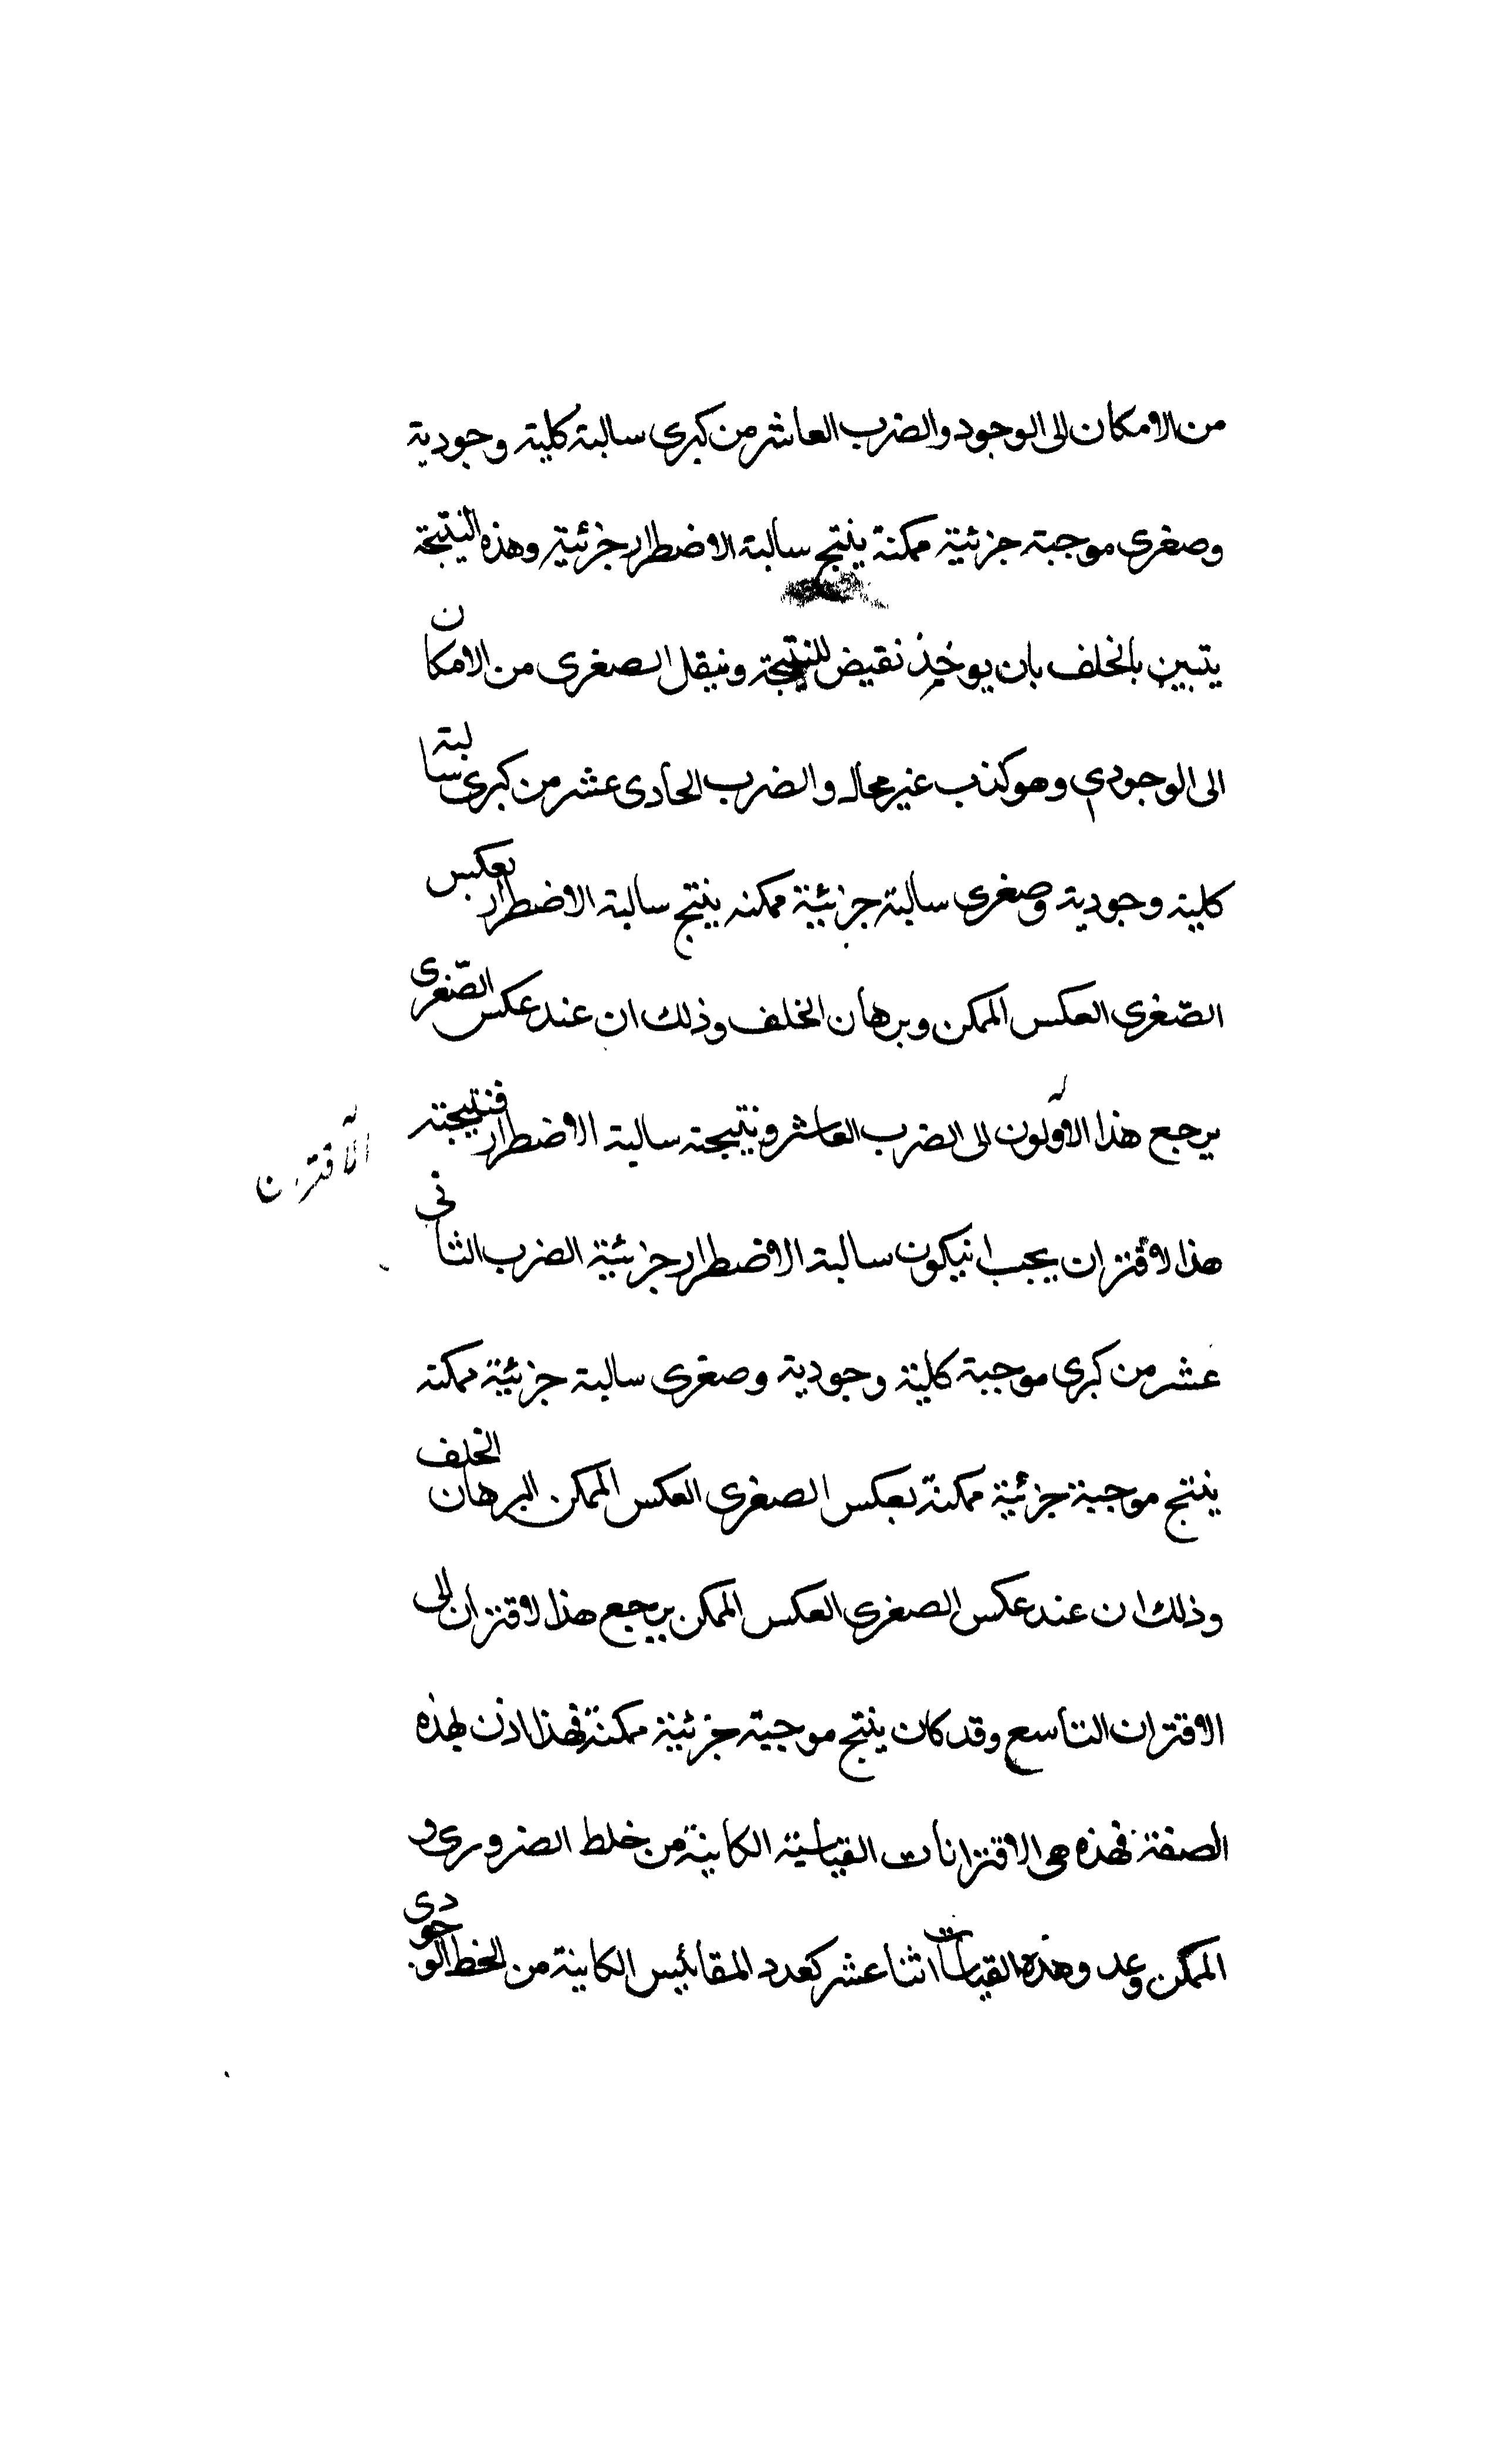 من الامكان الى الوجود والضرب العاشر من كبرى سالبة كلية وجودية
وصغرى موجبة جزئية ممكنة ينتج سالبة الاضطرار جزئية وهذه النتيجة
يتبين بالخلف بان يوخذ نقيض النتيجة وينقل الصغرى من الامكان
الى الوجودي وهو كذب غير محال والضرب الحادى عشر من كبرى سالبة
كلية وجودية وصغرى سالبة جزئية ممكنه ينتج سالبة الاضطرار بعكس
الصّغرى العكس الممكن وبرهان الخلف وذلك ان عند عكس الصّغرى
يرجع هذا الأولون الى الضرب العاشر ونتيجته سالبة الاضطرار فنتيجة
الاقترن
هذا لاقتران يجب انيكون سالبة الاضطرار جزئية الضرب الثانى
عشر من كبرى موجبة كلية وجودية وصغرى سالبة جزئية ممكنة
ينتج موجبة جزئية ممكنة بعكس الصغرى العكس الممكن البرهان الخلف
وذلك ان عند عكس الصغرى العكس الممكن يرجع هذا لاقتران الى
الاقتران التاسع وقد كان ينتج موجبة جزئية ممكنة فهذا اذن لهذه
الصفة فهذه هى الاقترانات القياسية الكاينة من خلط الضرورى و
الممكن وعدد وهذه القياسات اثنا عشر كعدد المقائيس الكاينة من الخط الوجودى